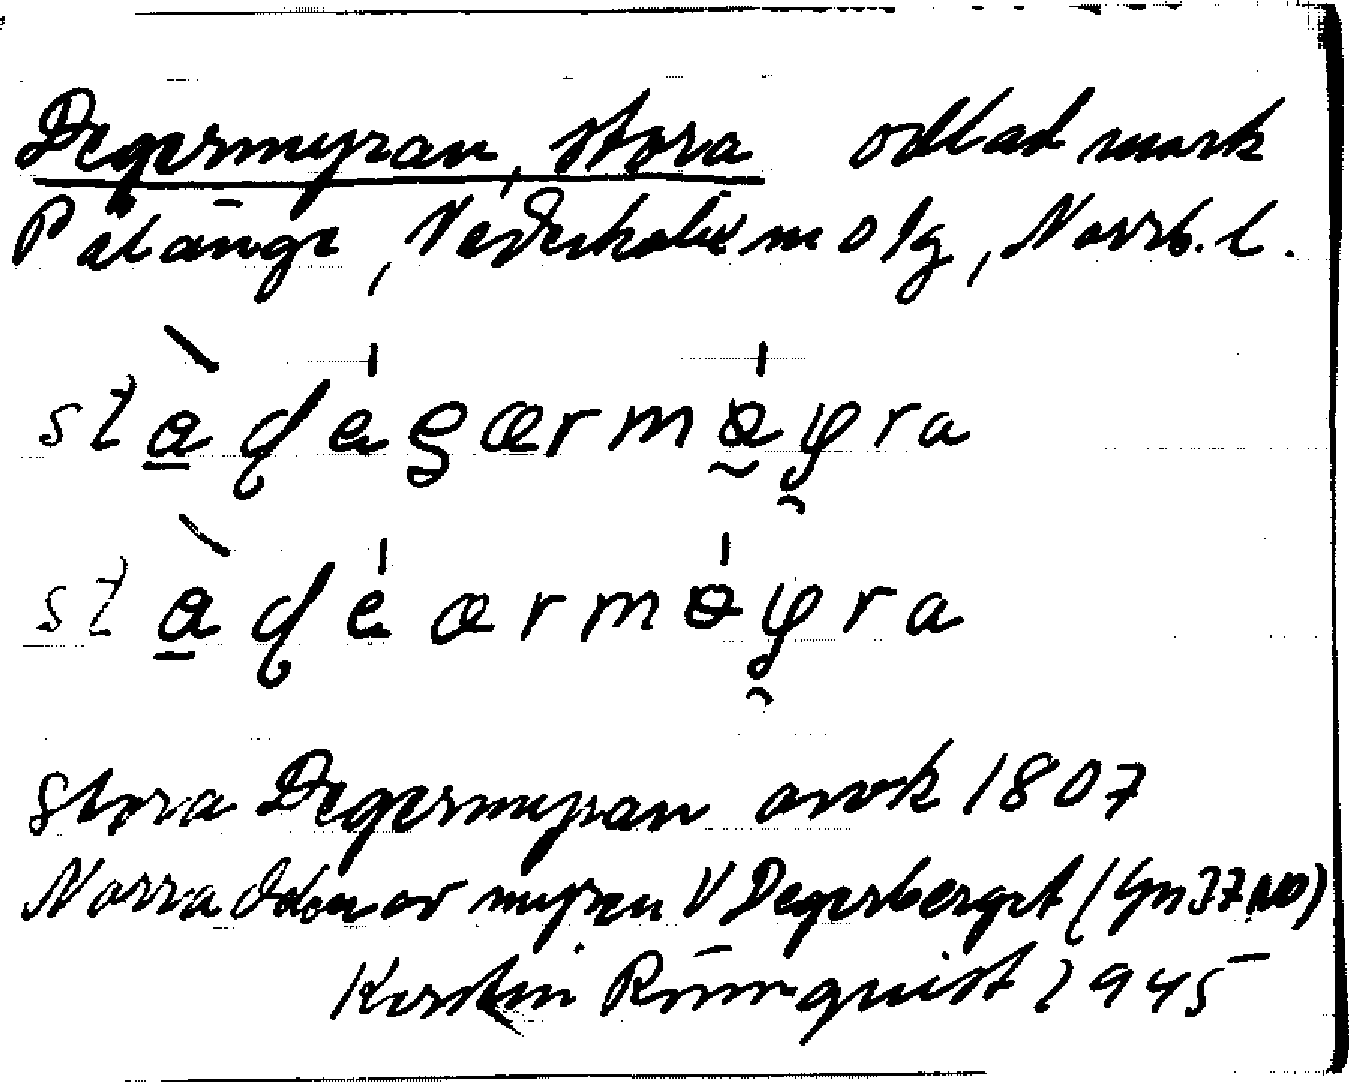 Degermyran, stora odlad mark
Pålänge, Nederkalix sn o lg, Norrb. l.
sta degærmøyra
sta deærmøyra
Stora Degermyran avvk 1807
Norra delen av myren V Degerberget (Gm 37 NO)
Kerstin Rönnquist 1945